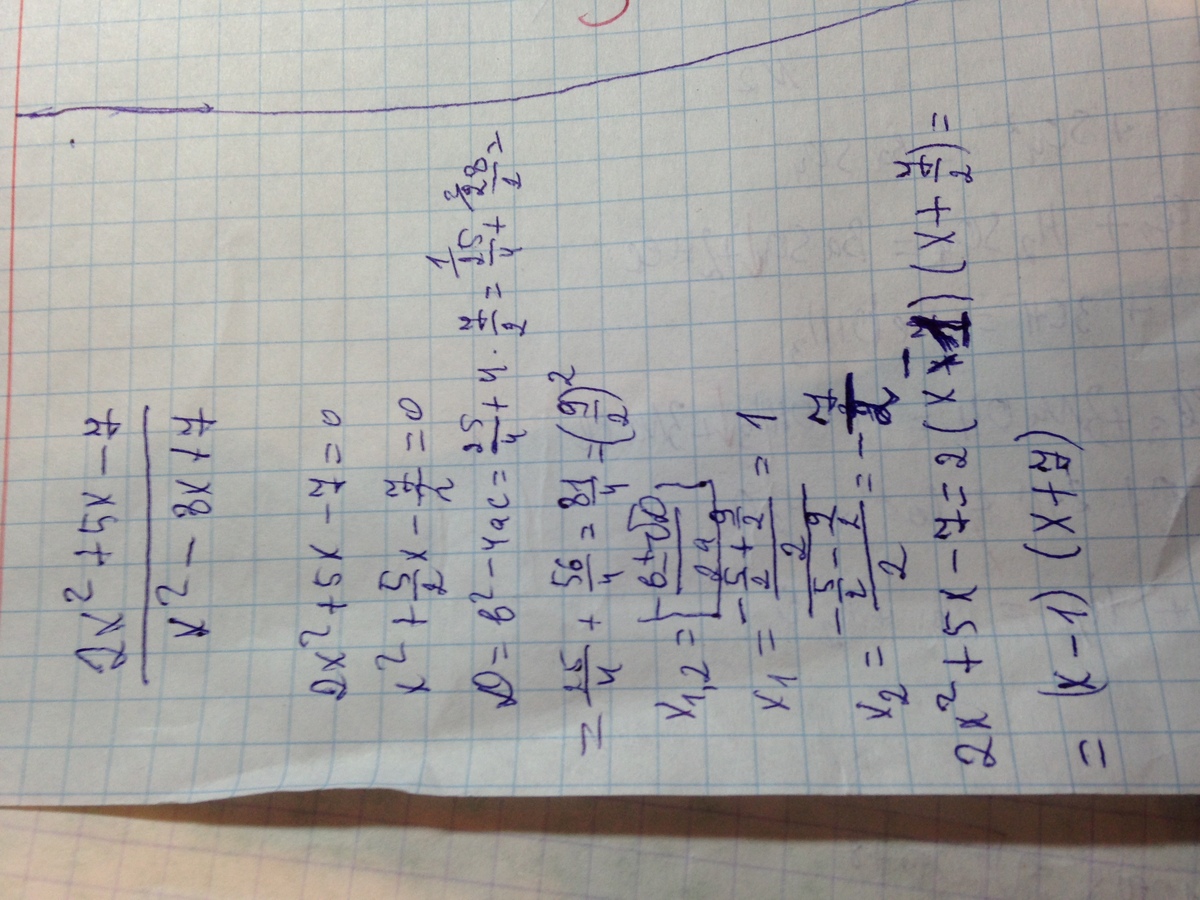 2x² + 5x - 7
x² - 8x + 7
2x² + 5x - 7 = 0
x² + 5/2 x - 7/2 = 0
D = b² - 4ac = 25/4 + 4 · 7/2 = 25/4 + 28/2 =
= 25/4 + 56/4 = 81/4 = (9/2)²
x1,2 = { b ± √D / 2a }
x1 = (-5/2 + 9/2) / 2 = 1
x2 = (-5/2 - 9/2) / 2 = -7/2
2x² + 5x - 7 = 2(x - 1)(x + 7/2) =
= (x - 1)(x + 7)